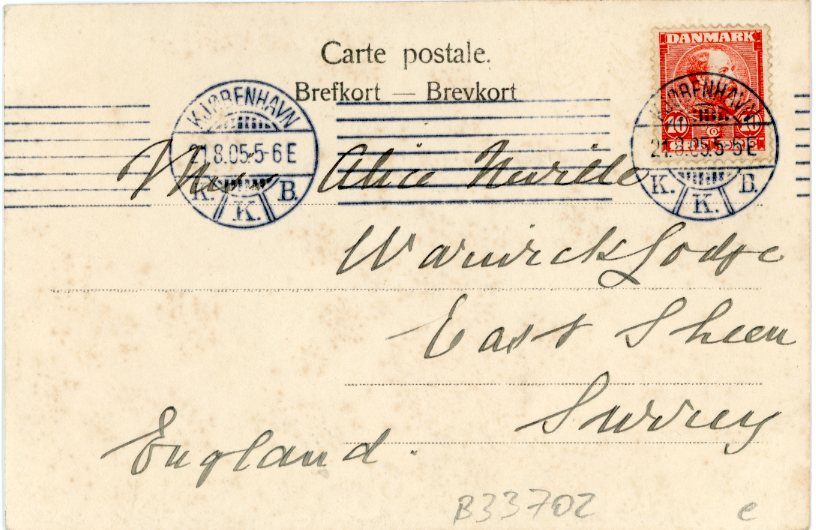 Carte postale.
Brefkort — Brevkort
DANMARK
10 10
KJØBENHAVN
21.8.05·5-6 E
K. K. B.
KJØBENHAVN
21.8.05.5-6 E
K. K. B.
Alice
Warwick Lodge
East Sheen
Surrey
England.
B33702
e